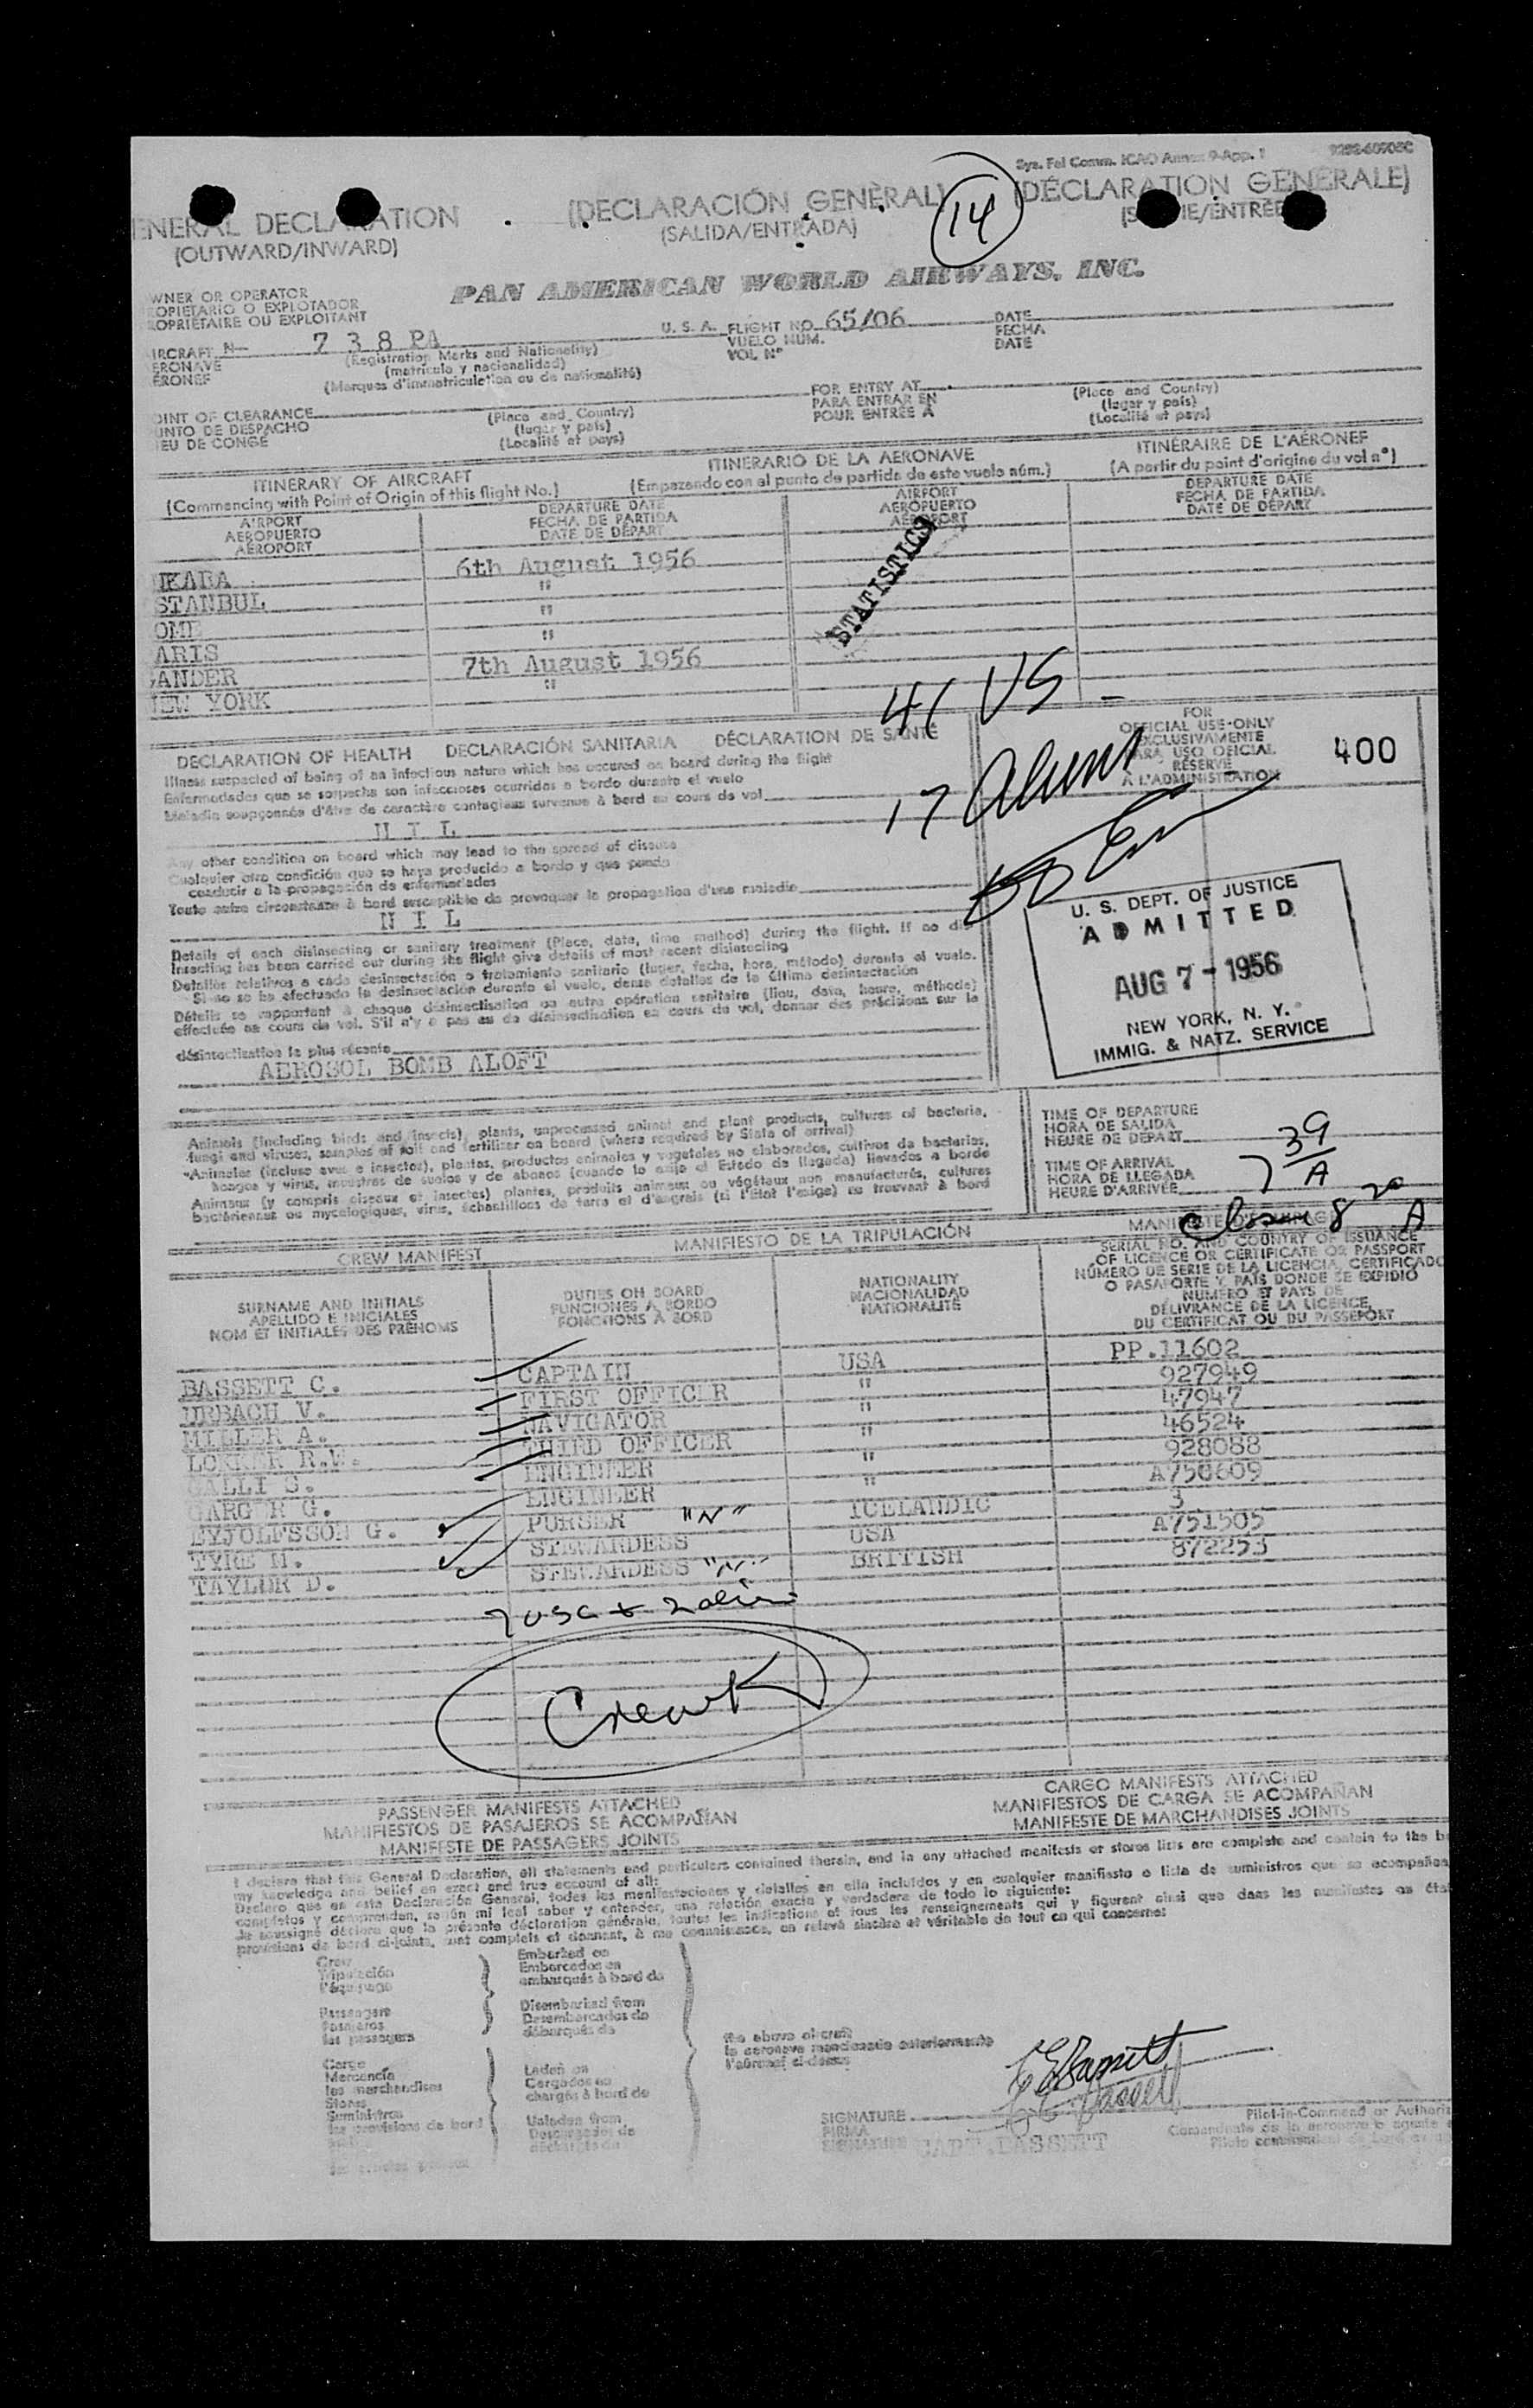 Sys. Fal Comm. ICAO Annex 9-App. 1
(14)
ENERAL DECLARATION
(OUTWARD/INWARD)
(DECLARACIÓN GENERAL)
(SALIDA/ENTRADA)
(DÉCLARATION GENERALE)
PAN AMERICAN WORLD AIRWAYS, INC.
WNER OR OPERATOR
OPIETARIO O EXPLOTADOR
OPRIÉTAIRE OU EXPLOITANT
IRCRAFT N- 738 PA
ERONAVE
ÉRONEF
(Registration Marks and Nationality)
(matricula y nacionalidad)
(Marques d'immatriculation ou de nationalité)
U. S. A. FLIGHT NO. 65/06
VUELO NUM.
VOL N°
DATE
FECHA
DATE
OINT OF CLEARANCE
UNTO DE DESPACHO
IEU DE CONGÉ
(Place and Country)
(lugar y pais)
(Localité et pays)
FOR ENTRY AT
PARA ENTRAR EN
POUR ENTRÉE A
(Place and Country)
(lugar y pais)
(Localité et pays)
ITINERARY OF AIRCRAFT
(Commencing with Point of Origin of this flight No.)
ITINERARIO DE LA AERONAVE
(Empezando con el punto de partida de este vuelo núm.)
ITINÉRAIRE DE L'AÉRONEF
(A partir du point d'origine du vol n°)
AIRPORT
AEROPUERTO
AÉROPORT
DEPARTURE DATE
FECHA DE PARTIDA
DATE DE DÉPART
AIRPORT
AEROPUERTO
AÉROPORT
DEPARTURE DATE
FECHA DE PARTIDA
DATE DE DÉPART
NKARA 6th August 1956
STANBUL "
OME "
ARIS "
ANDER 7th August 1956
NEW YORK "
STATISTICS
41 US
17 Aliens
DECLARATION OF HEALTH DECLARACIÓN SANITARIA DÉCLARATION DE SANTÉ
Illness suspected of being of an infectious nature which has occured on board during the flight
Enfermedades que se sospecha son infecciosas ocurridas a bordo durante el vuelo
Maladie soupçonnée d'être de caractère contagieux survenue à bord au cours de vol
N I L
Any other condition on board which may lead to the spread of disease
Cualquier otra condición que se haya producido a bordo y que pueda
conducir a la propagación de enfermedades
Toute autre circonstance à bord susceptible de provoquer la propagation d'une maladie
N I L
Details of each disinsecting or sanitary treatment (Place, date, time method) during the flight. If no dis-
insecting has been carried out during the flight give details of most recent disinsecting
Detalles relativos a cada desinsectación o tratamiento sanitario (lugar, fecha, hora, método) durante el vuelo.
Si no se ha efectuado la desinsectación durante el vuelo, dense detalles de la última desinsectación
Détails se rapportant à chaque désinsectisation ou autre opération sanitaire (lieu, date, heure, méthode)
effectuée au cours du vol. S'il n'y a pas eu de désinsectisation au cours du vol, donner des précisions sur la
désinsectisation la plus récente
AEROSOL BOMB ALOFT
FOR
OFFICIAL USE-ONLY
EXCLUSIVAMENTE
PARA USO OFICIAL
RÉSERVÉ
A L'ADMINISTRATION
400
U. S. DEPT. OF JUSTICE
ADMITTED
AUG 7 - 1956
NEW YORK, N. Y.
IMMIG. & NATZ. SERVICE
Animals (including birds and insects), plants, unprocessed animal and plant products, cultures of bacteria,
fungi and viruses, samples of soil and fertilizer on board (where required by State of arrival)
Animales (incluso aves e insectos), plantas, productos animales y vegetales no elaborados, cultivos de bacterias,
hongos y virus, muestras de suelos y de abonos (cuando lo exija el Estado de llegada) llevados a bordo
Animaux (y compris oiseaux et insectes) plantes, produits animaux ou végétaux non manufacturés, cultures
bactériennes ou mycologiques, virus, échantillons de terre et d'engrais (si l'État l'exige) se trouvant à bord
TIME OF DEPARTURE
HORA DE SALIDA
HEURE DE DÉPART
TIME OF ARRIVAL
HORA DE LLEGADA
HEURE D'ARRIVÉE
7 39 A
8 20 A
CREW MANIFEST
MANIFIESTO DE LA TRIPULACIÓN
SURNAME AND INITIALS
APELLIDO E INICIALES
NOM ET INITIALES DES PRÉNOMS
DUTIES ON BOARD
FUNCIONES A BORDO
FONCTIONS À BORD
NATIONALITY
NACIONALIDAD
NATIONALITÉ
SERIAL NO. AND COUNTRY OF ISSUANCE
OF LICENCE OR CERTIFICATE OR PASSPORT
NÚMERO DE SERIE DE LA LICENCIA, CERTIFICADO
O PASAPORTE Y PAÍS DONDE SE EXPIDIÓ
NUMÉRO ET PAYS DE
DÉLIVRANCE DE LA LICENCE,
DU CERTIFICAT OU DU PASSEPORT
BASSETT C. CAPTAIN USA PP.11602
URBACH V. FIRST OFFICER " 927949
MILLER A. NAVIGATOR " 47947
R.W. THIRD OFFICER " 46524
GALLI S. ENGINEER " 928088
G. ENGINEER " A750609
EYJOLFSSON G. PURSER "N" ICELANDIC 3
TYRE M. STEWARDESS USA A751505
TAYLOR D. STEWARDESS "N" BRITISH 872253
7 USC + 2 alien
Crew
PASSENGER MANIFESTS ATTACHED
MANIFIESTOS DE PASAJEROS SE ACOMPAÑAN
MANIFESTE DE PASSAGERS JOINTS
CARGO MANIFESTS ATTACHED
MANIFIESTOS DE CARGA SE ACOMPAÑAN
MANIFESTE DE MARCHANDISES JOINTS
I declare that this General Declaration, all statements and particulars contained therein, and in any attached manifests or stores lists are complete and contain to the b
my knowledge and belief an exact and true account of all:
Declaro que en esta Declaración General, todas las manifestaciones y detalles en ella incluidos y en cualquier manifiesto o lista de suministros que se acompañan
completos y comprenden, según mi leal saber y entender, una relación exacta y verdadera de todo lo siguiente:
Je soussigné déclare que la présente déclaration générale, toutes les indications et tous les renseignements qui y figurent ainsi que dans les manifestes ou éta
provisions de bord ci-joints, sont complets et donnent, à ma connaissance, un relevé sincère et véritable de tout ce qui concerne:
Crew
Tripulación
l'équipage
Passengers
Pasajeros
les passagers
Cargo
Mercancia
les marchandises
Stores
Suministros
les provisions de bord
Embarked on
Embarcados en
embarqués à bord de
Disembarked from
Desembarcados de
débarqués de
Laden on
Cargados en
chargés à bord de
Unladen from
Descargados de
déchargés de
the above aircraft
la aeronave mencionada anteriormente
l'aéronef ci-dessus
SIGNATURE
FIRMA
SIGNATURE
C E Bassett
CAPT. BASSETT
Pilot-in-Command or Authoriz
Comandante de la aeronave o agente